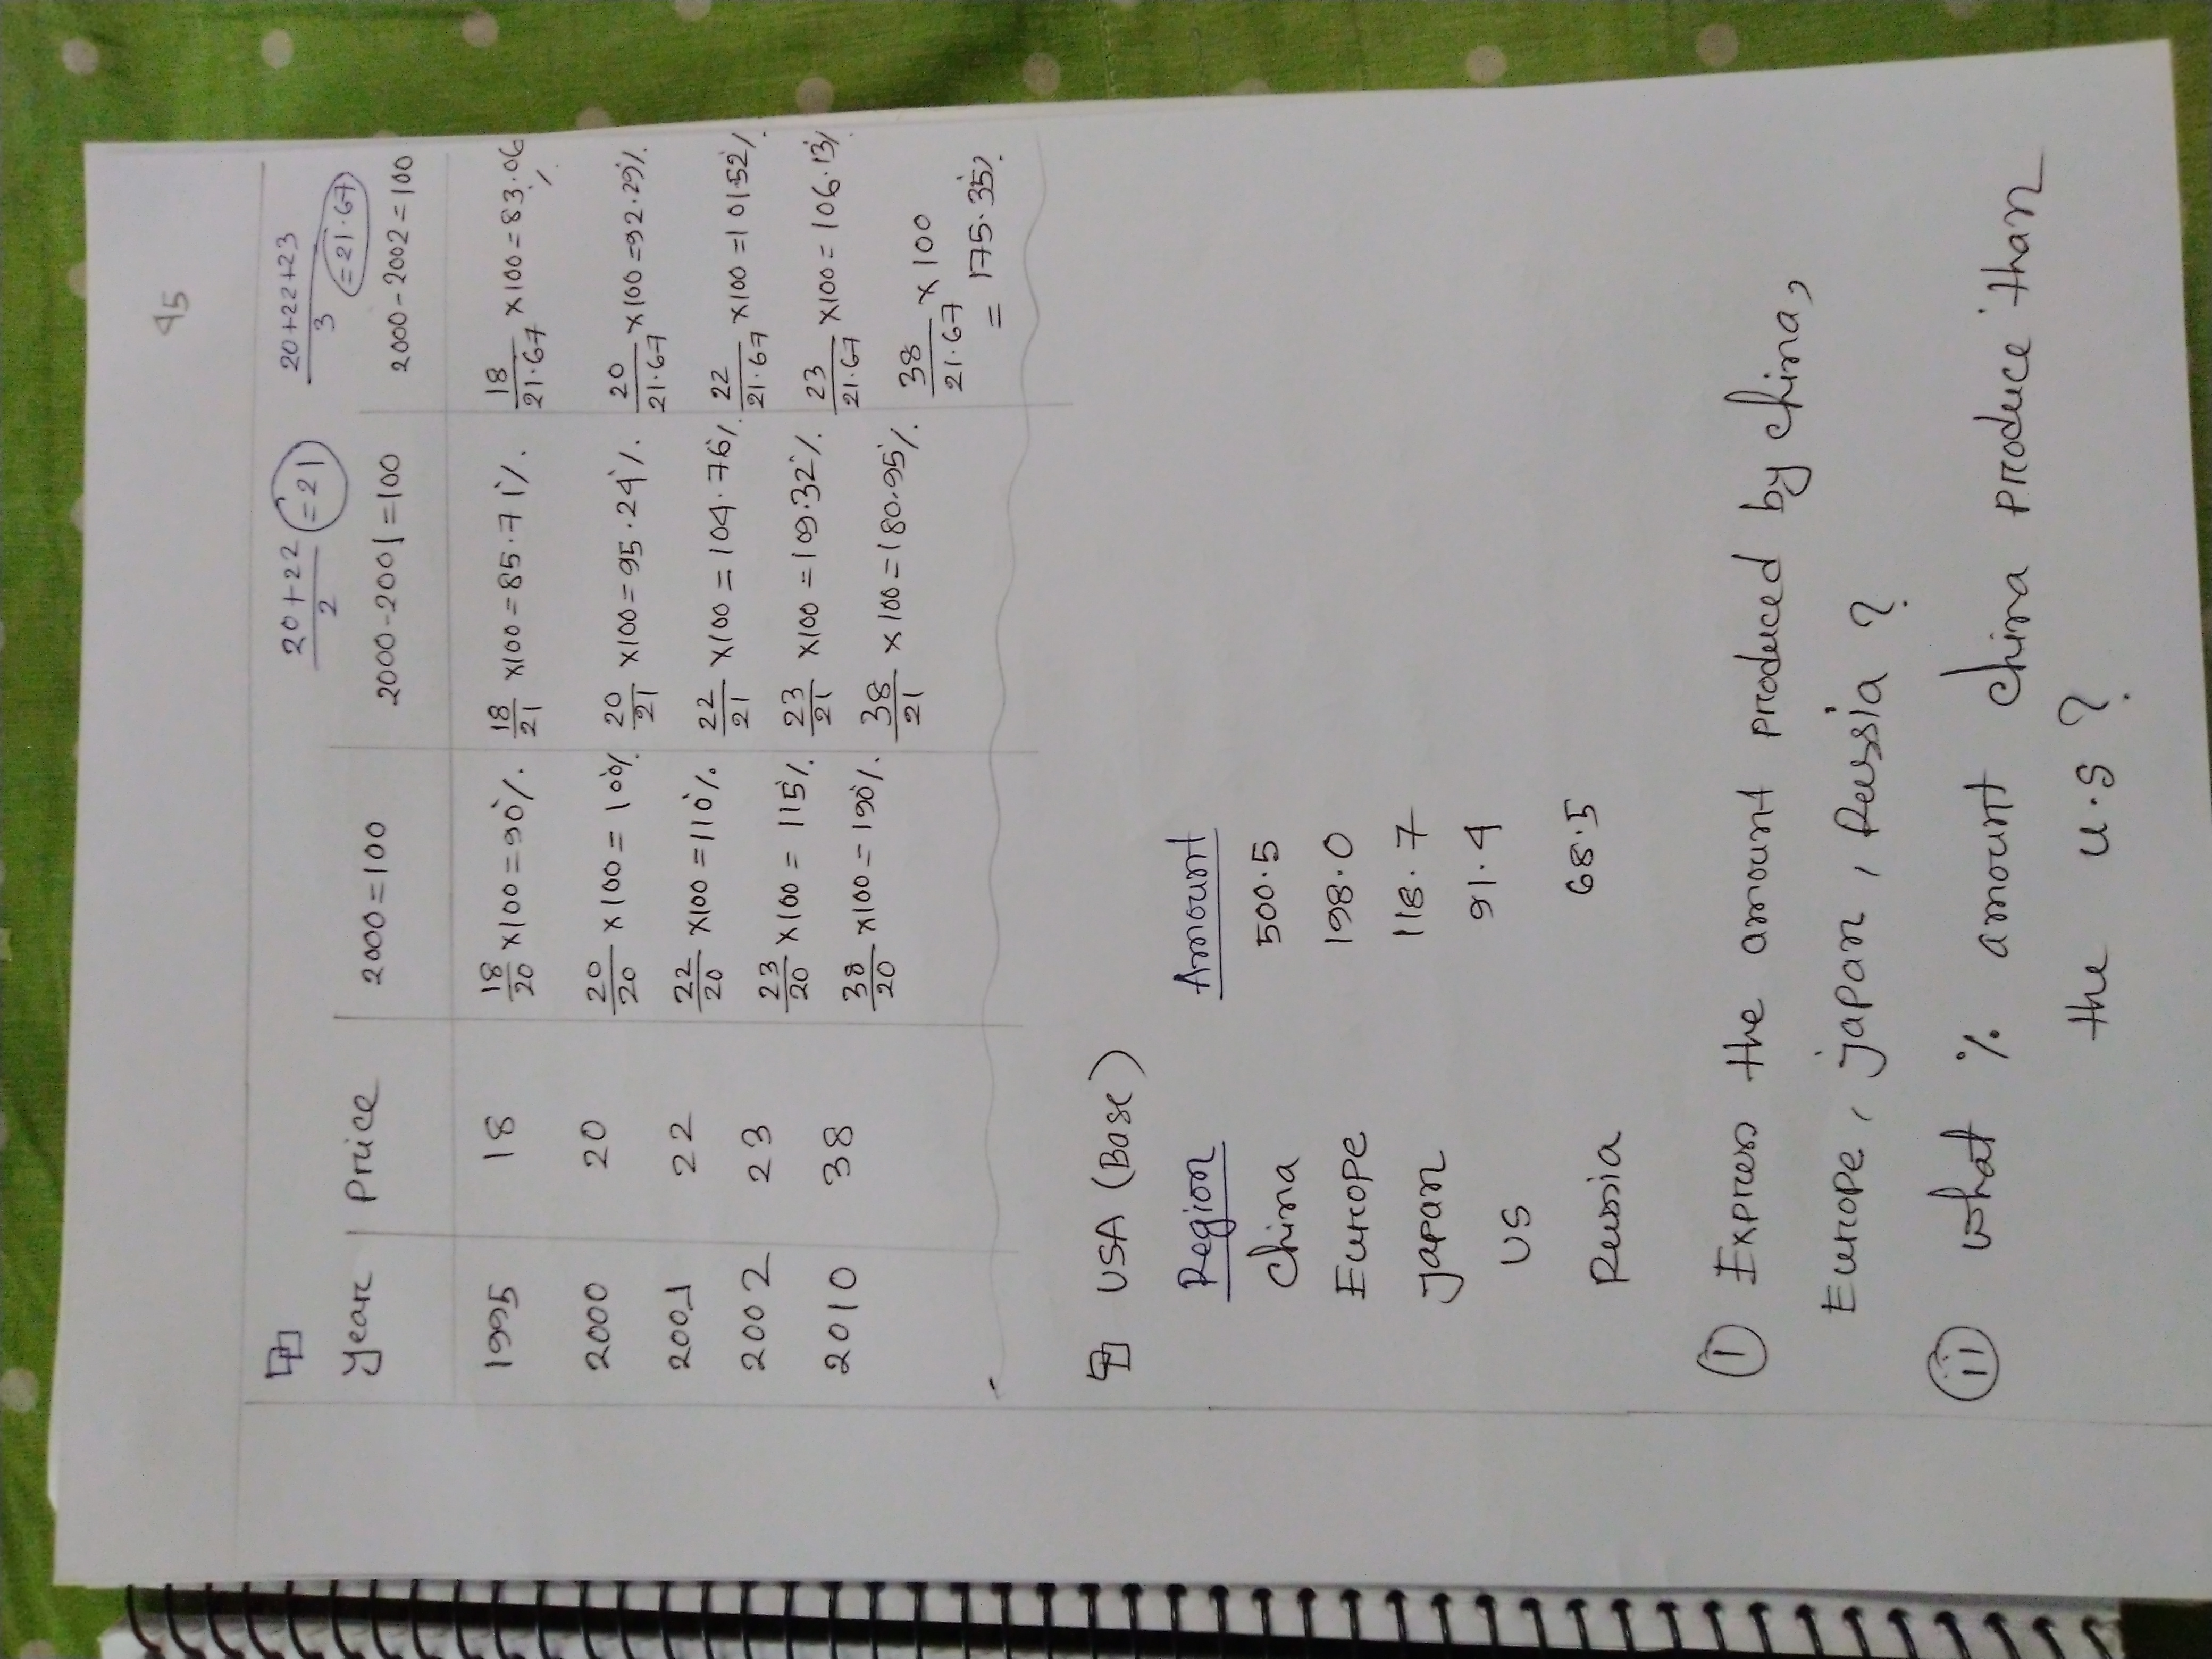 45
20+22/2 =21   20+22+23/3 =21.67
Year   Price   2000=100   2000-2001=100   2000-2002=100
1995   18   18/20 ×100=90%.   18/21 ×100=85.71%.   18/21.67 ×100=83.06%.
2000   20   20/20 ×100=100%.   20/21 ×100=95.24%.   20/21.67 ×100=92.29%.
2001   22   22/20 ×100=110%.   22/21 ×100=104.76%.   22/21.67 ×100=101.52%.
2002   23   23/20 ×100=115%.   23/21 ×100=109.32%.   23/21.67 ×100=106.13%.
2010   38   38/20 ×100=190%.   38/21 ×100=180.95%.   38/21.67 ×100
= 175.35%.
USA (Base)
Region   Amount
China   500.5
Europe   198.0
Japan   118.7
US   91.4
Russia   68.5
(i) Express the amount produced by China,
Europe, Japan, Russia?
(ii) what % amount china produce than
the U.S?